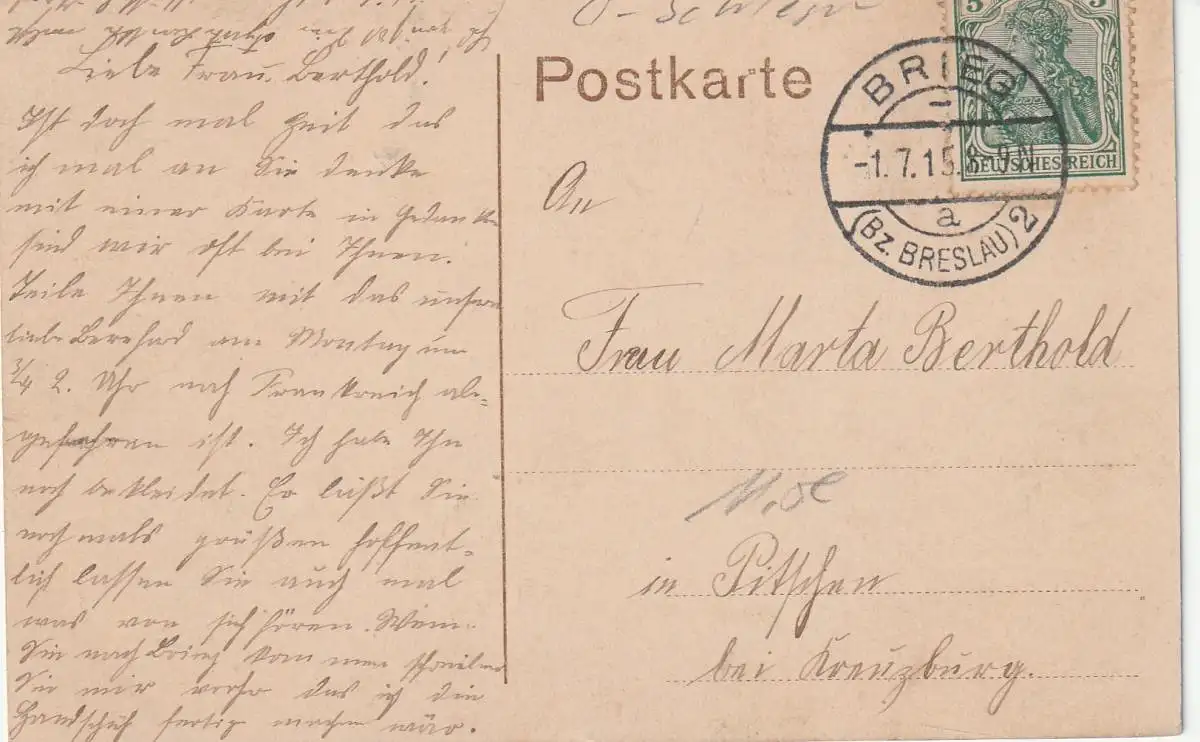 Liebe Frau Berthold!
Ist doch mal Zeit das
ich mal an Sie denke
mit einer Karte in Gedanke
sind wir oft bei Ihnen.
Teile Ihnen mit das unser
liebe Bernhard am Montag um
3/4 2. Uhr nach Frankreich ab-
gefahren ist. Ich habe Ihn
noch bekleidet. Er läßt Sie
nochmals grüßen hoffent-
lich lassen Sie auch mal
was von sich hören. Wenn
Sie nach Brieg kommen schreiben
Sie mir vorher das ich die
Handschuh fertig machen wär.
Postkarte
5 5
DEUTSCHES REICH
BRIEG
-1.7.15.8-9N
a
(Bz. BRESLAU) 2
An
Frau Marta Berthold
in Pitschen
bei Kreuzburg.